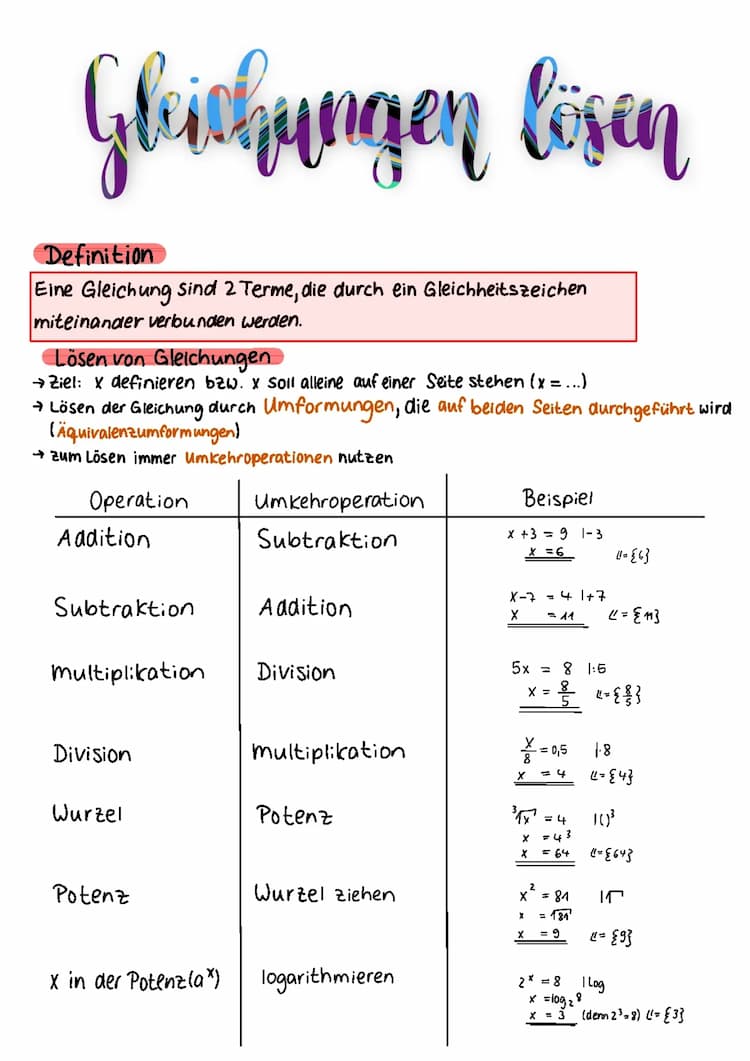 Gleichungen lösen
Definition
Eine Gleichung sind 2 Terme, die durch ein Gleichheitszeichen
miteinander verbunden werden.
Lösen von Gleichungen
→ Ziel: x definieren bzw. x soll alleine auf einer Seite stehen (x = ...)
→ Lösen der Gleichung durch Umformungen, die auf beiden Seiten durchgeführt wird
(Äquivalenzumformungen)
→ zum Lösen immer Umkehroperationen nutzen
Operation Umkehroperation Beispiel
Addition Subtraktion x + 3 = 9 |-3
x = 6 𝕃 = {6}
Subtraktion Addition x-7 = 4 |+7
x = 11 𝕃 = {11}
Multiplikation Division 5x = 8 |:5
x = 8/5 𝕃 = {8/5}
Division Multiplikation x/8 = 0,5 |·8
x = 4 𝕃 = {4}
Wurzel Potenz ³√x = 4 |()³
x = 4³
x = 64 𝕃 = {64}
Potenz Wurzel ziehen x² = 81 |√
x = √81
x = 9 𝕃 = {9}
x in der Potenz (aˣ) logarithmieren 2ˣ = 8 | Log
x = log₂8
x = 3 (denn 2³=8) 𝕃 = {3}